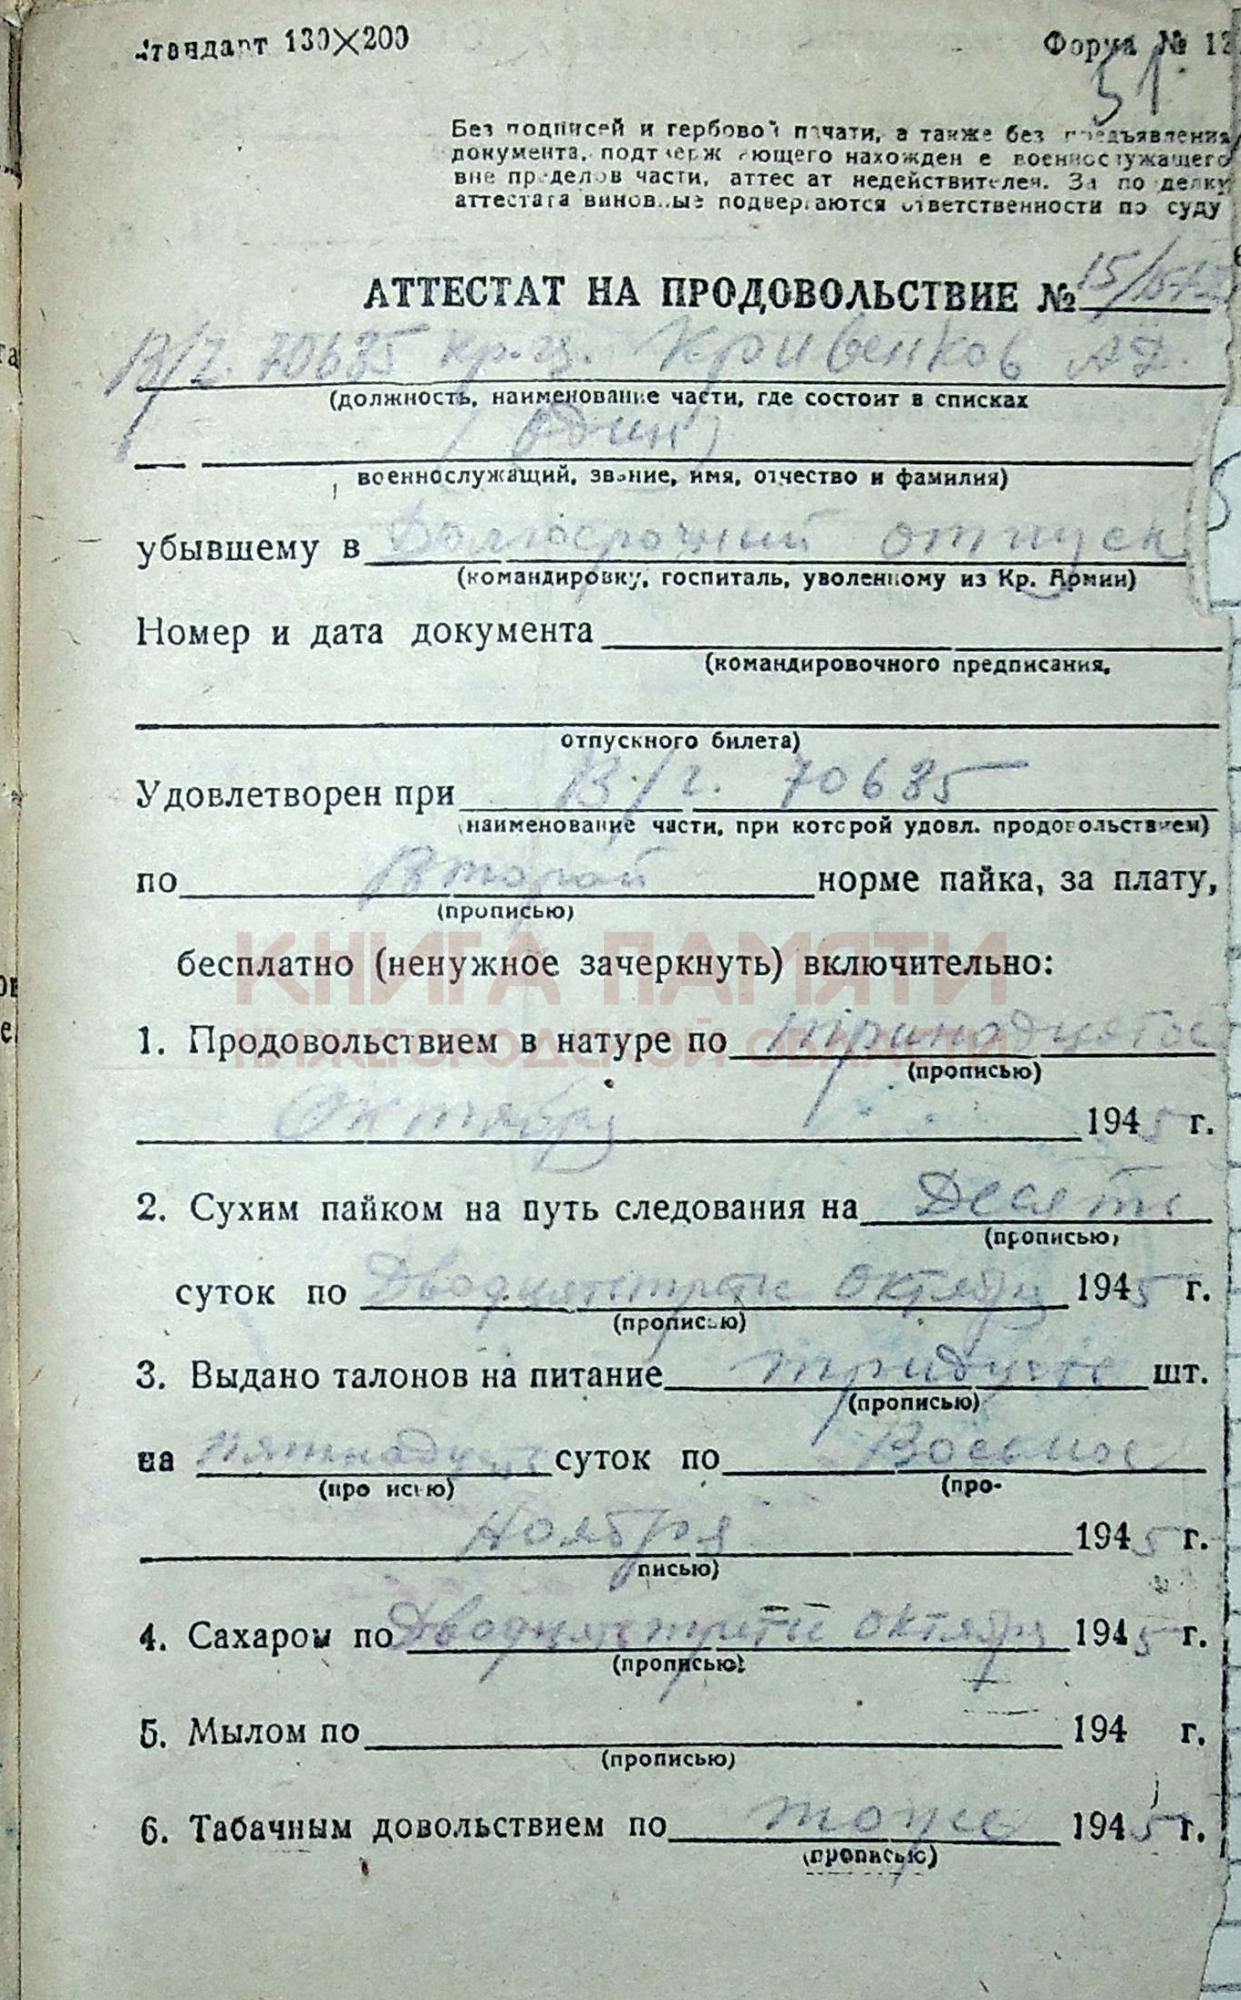 Стандарт 130×200
Форма № 12
51
Без подписей и гербовой печати, а также без предъявления
документа, подтверждающего нахождение военнослужащего
вне пределов части, аттестат недействителен. За подделку
аттестата виновные подвергаются ответственности по суду
АТТЕСТАТ НА ПРОДОВОЛЬСТВИЕ № 15/
В/ч. 70635 кр-ц. Кривенков А
(должность, наименование части, где состоит в списках
(один)
военнослужащий, звание, имя, отчество и фамилия)
убывшему в Долгосрочный отпуск
(командировку, госпиталь, уволенному из Кр. Армии)
Номер и дата документа
(командировочного предписания,
отпускного билета)
Удовлетворен при В/ч. 70635
(наименование части, при которой удовл. продовольствием)
по Второй норме пайка, за плату,
(прописью)
КНИГА ПАМЯТИ
бесплатно (ненужное зачеркнуть) включительно:
НИЖЕГОРОДСКОЙ ОБЛАСТИ
1. Продовольствием в натуре по тринадцатое
(прописью)
Октября 1945 г.
2. Сухим пайком на путь следования на Десять
(прописью)
суток по Двадцатьтретье октября 1945 г.
(прописью)
3. Выдано талонов на питание тридцать шт.
(прописью)
на пятнадцать суток по Восьмое
(прописью) (про-
Ноября 1945 г.
писью)
4. Сахаром по Двадцатьтретье октября 1945 г.
(прописью)
5. Мылом по 194 г.
(прописью)
6. Табачным довольствием по тоже 1945 г.
(прописью)